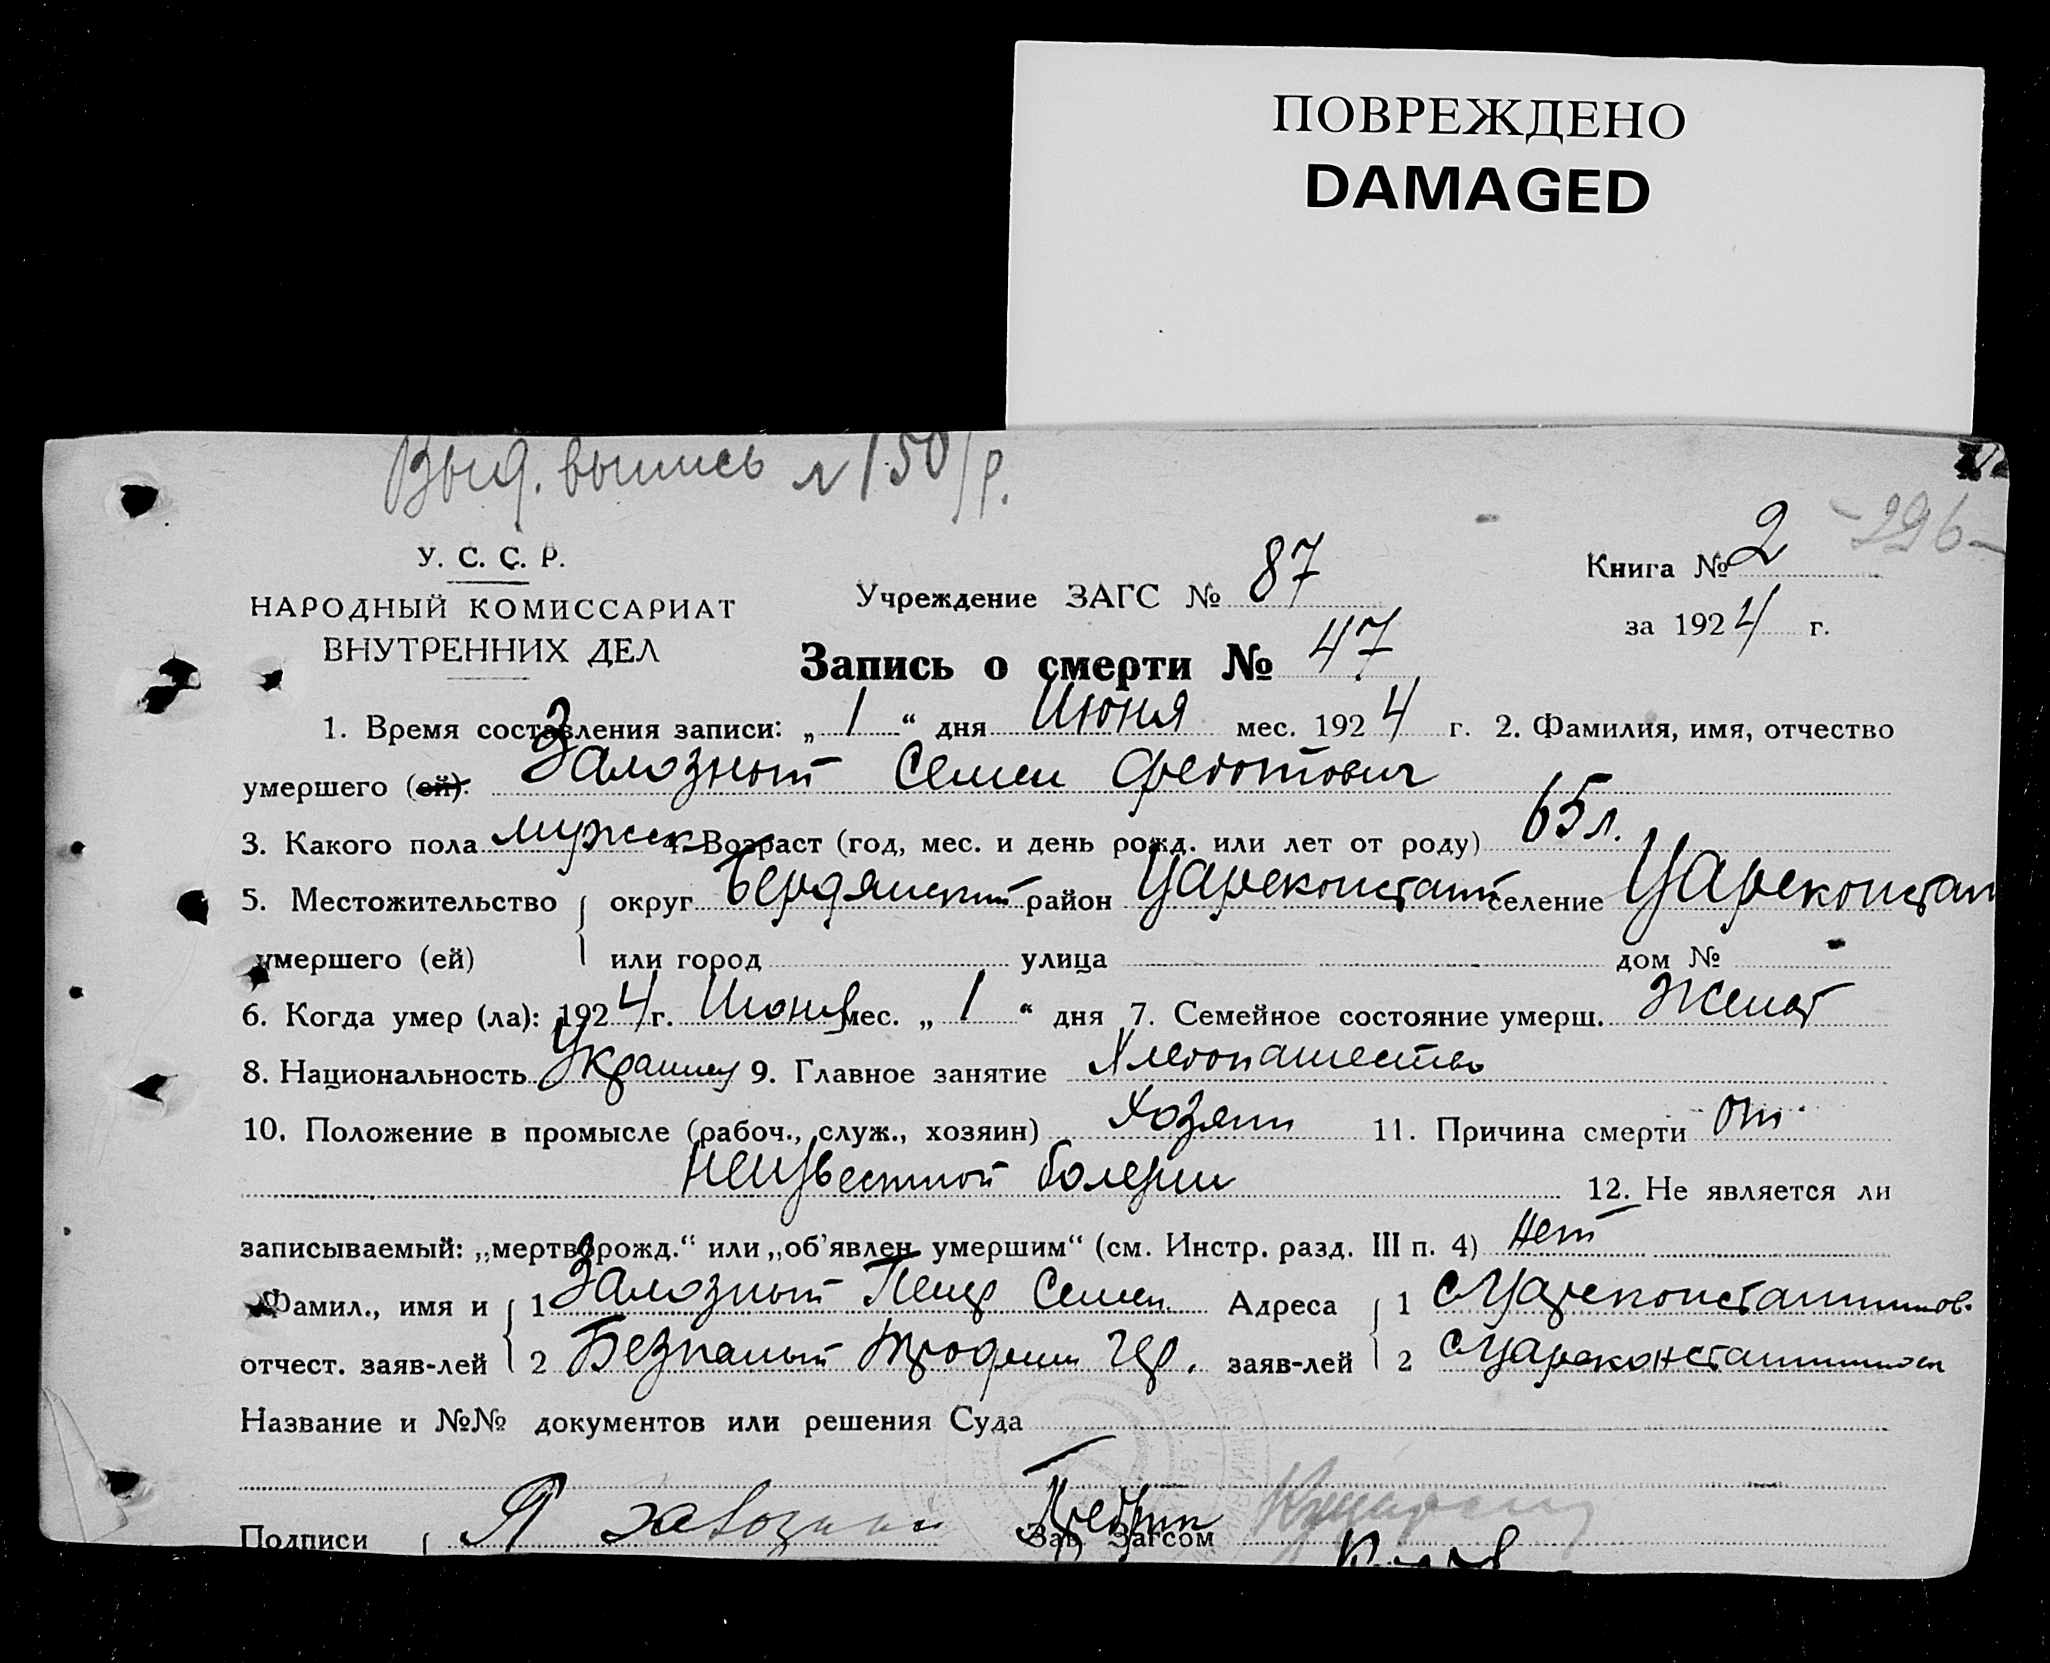 ПОВРЕЖДЕНО
DAMAGED
Выд. выпись № 150/р.
-296-
У. С. С. Р.
НАРОДНЫЙ КОМИССАРИАТ
ВНУТРЕННИХ ДЕЛ
Учреждение ЗАГС № 87
Книга № 2
за 1924 г.
Запись о смерти № 47
1. Время составления записи: „ 1 “ дня Июня мес. 1924 г. 2. Фамилия, имя, отчество
умершего (ей). Залозный Семен Федотович
3. Какого пола мужск 4. Возраст (год, мес. и день рожд. или лет от роду) 65 л.
5. Местожительство округ Бердянский район Цареконстант селение Цареконстан
умершего (ей) или город улица дом №
6. Когда умер (ла): 1924 г. Июня мес. „ 1 “ дня 7. Семейное состояние умерш. Женат
8. Национальность Украинец 9. Главное занятие Хлебопашество
10. Положение в промысле (рабоч., служ., хозяин) хозяин 11. Причина смерти от
неизвестной болезни 12. Не является ли
записываемый: „мертворожд.“ или „об’явлен умершим“ (см. Инстр. разд. III п. 4) нет
Фамил., имя и 1 Залозный Петр Семен. Адреса 1 с Цареконстантинов.
отчест. заяв-лей 2 Безпалый Трофим заяв-лей 2 с Цареконстантинов
Название и №№ документов или решения Суда
Подписи Зав Загсом